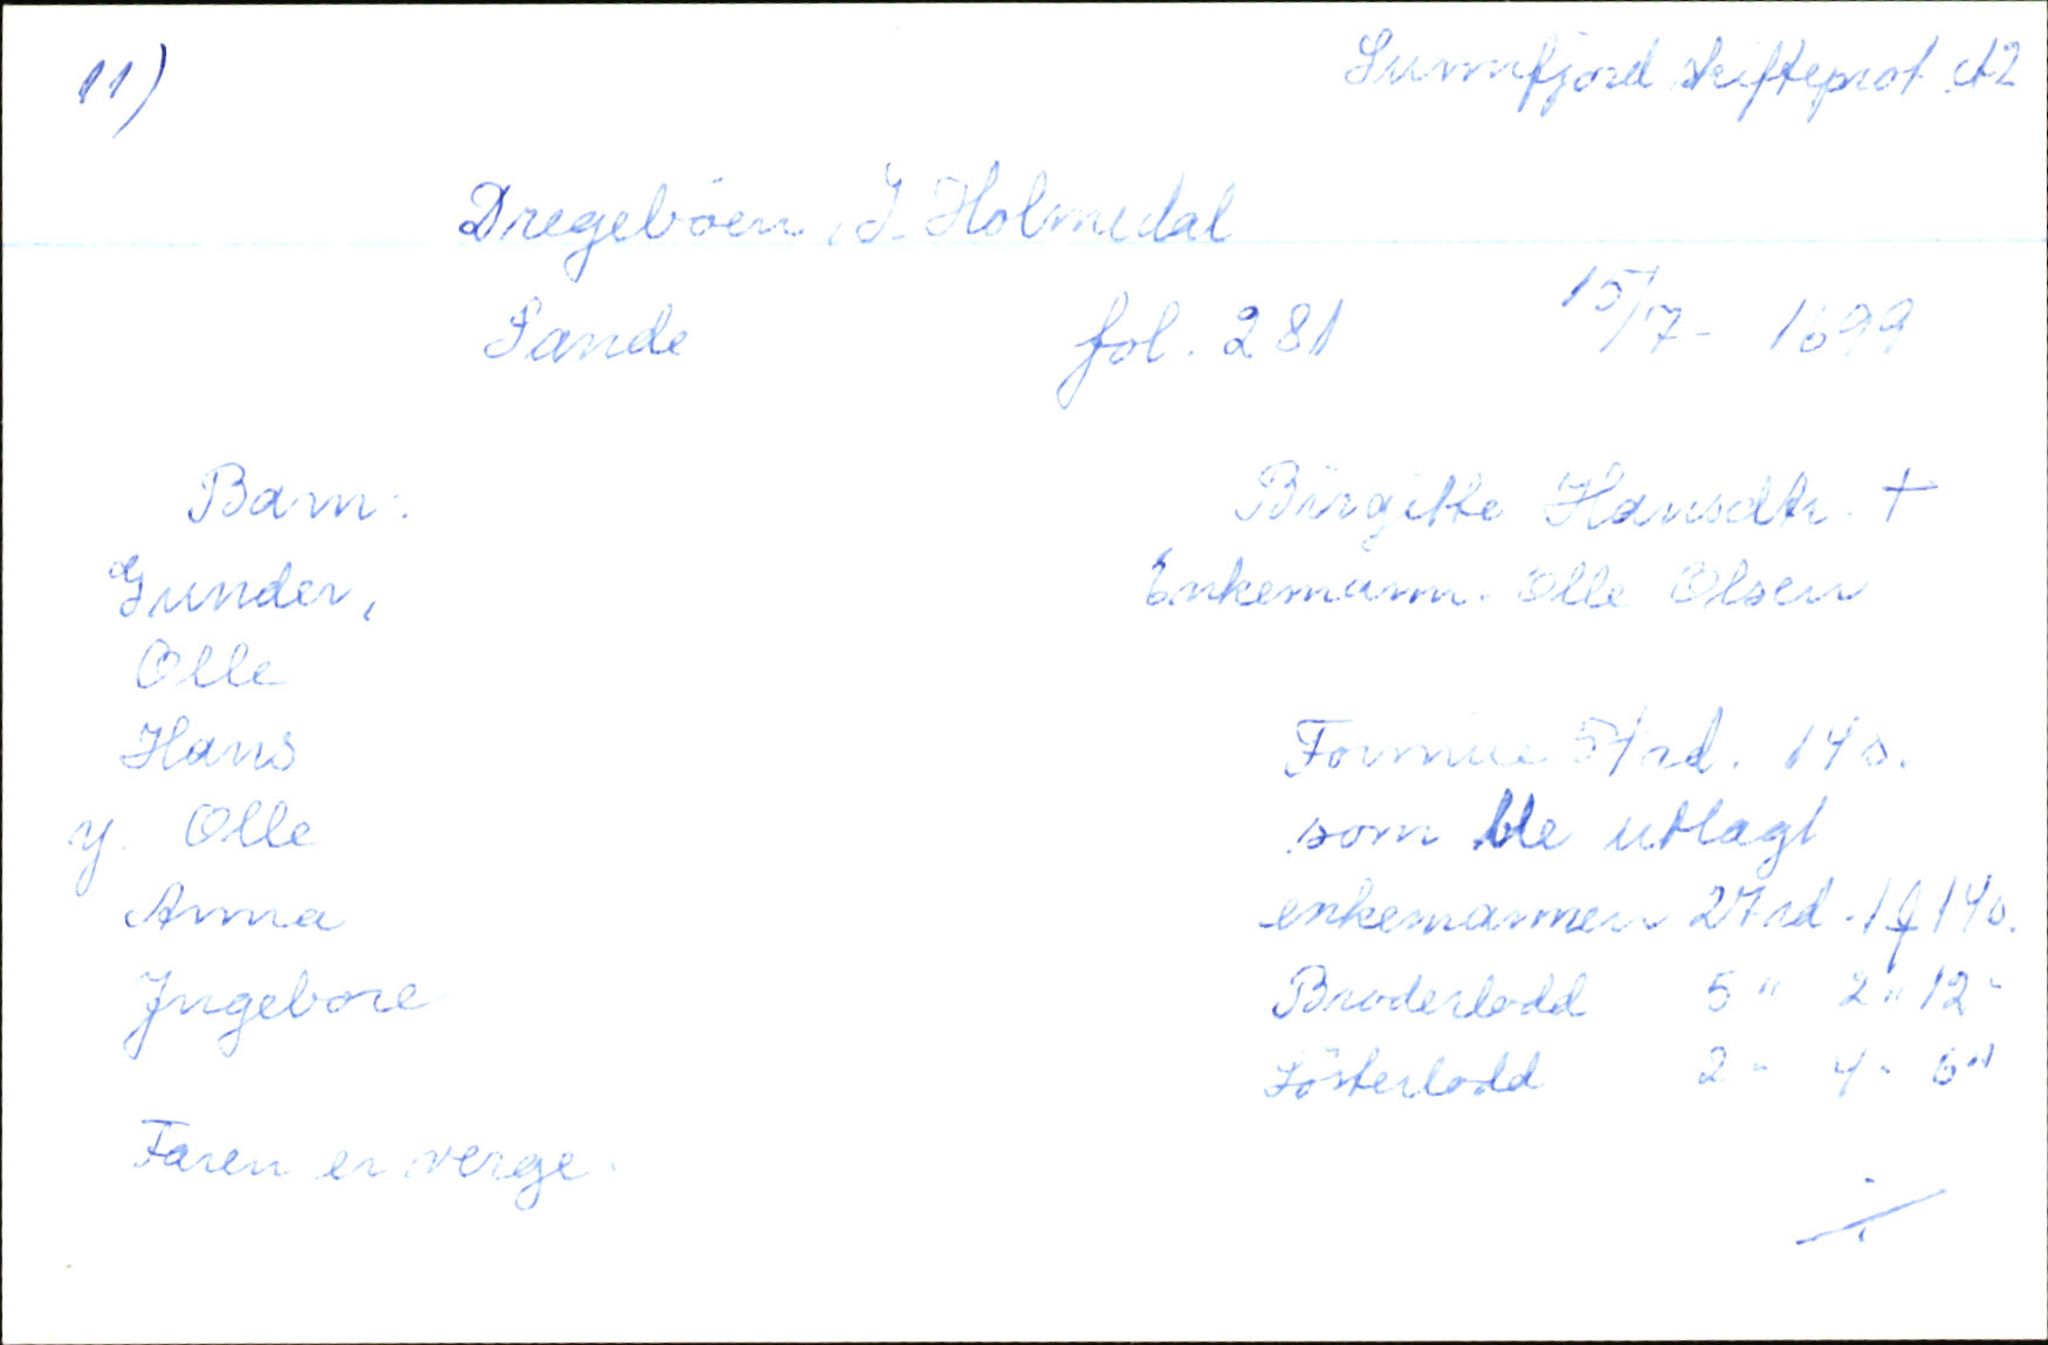 11)
Sunnfjord skifteprot. A2
Dregebøen, I. Holmedal
Sande fol. 281 15/7- 1699
Barn: Birgitte Hansdtr. +
Gunder, Enkemann. Olle Olsen
Olle
Hans Formue 54 rd. 14 s.
y. Olle som ble utlagt
Anna enkemannen 27 rd. 1 14 s.
Ingebore Broderlodd 5 " 2 " 12 "
Søsterlodd 2 " 4 " 6 "
Faren er verge.